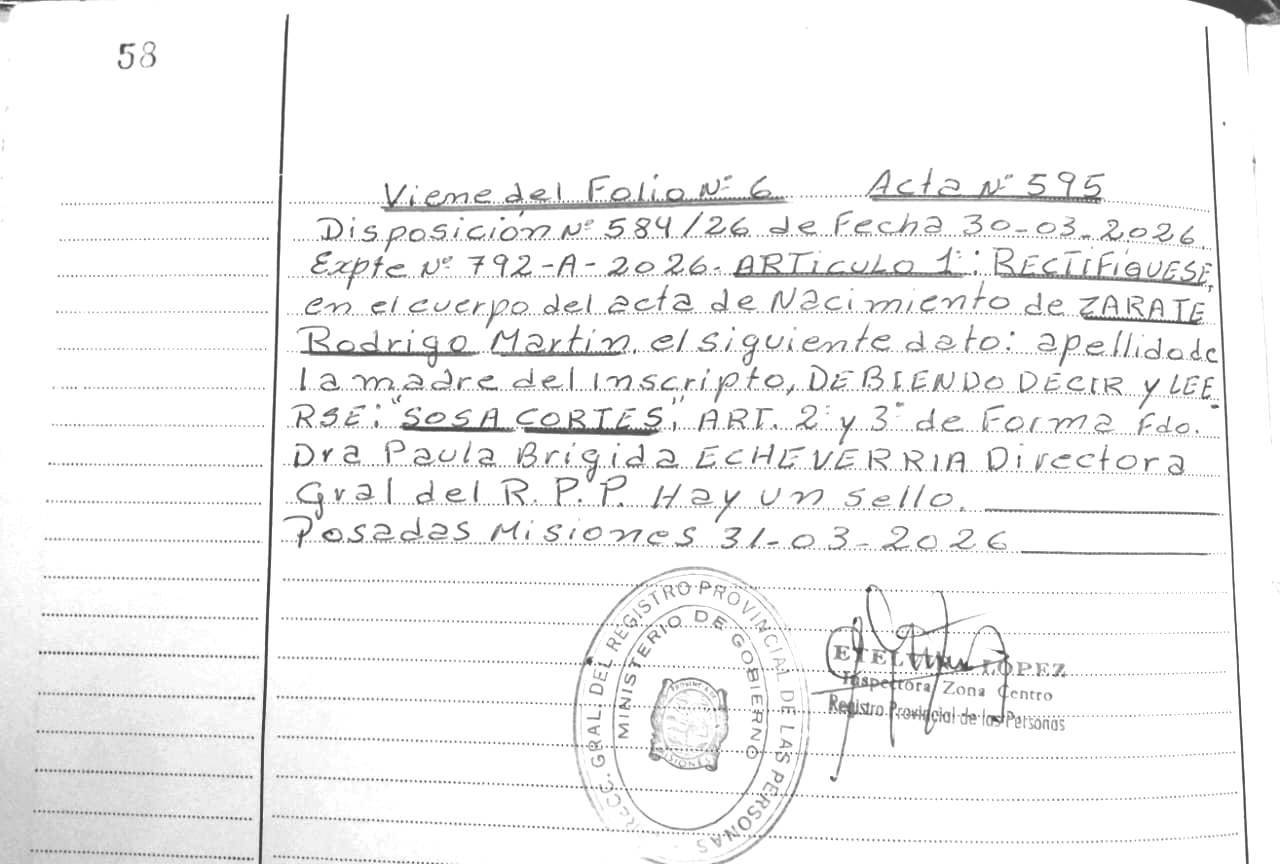 58
Viene del Folio Nº 6 Acta Nº 595
Disposición Nº 584/26 de Fecha 30-03-2026.
Expte Nº 792-A-2026. ARTICULO 1º: RECTIFIQUESE,
en el cuerpo del acta de Nacimiento de ZARATE
Rodrigo Martin, el siguiente dato: apellido de
la madre del inscripto, DEBIENDO DECIR y LEE
RSE: "SOSA CORTES", ART. 2º y 3º de Forma Fdo.
Dra Paula Brigida ECHEVERRIA Directora
Gral del R.P.P. Hay un sello.
Posadas Misiones 31-03-2026
GRAL DEL REGISTRO PROVINCIAL DE LAS PERSONAS
MINISTERIO DE GOBIERNO
MISIONES
LOPEZ
Inspectora Zona Centro
Registro Provincial de las Personas